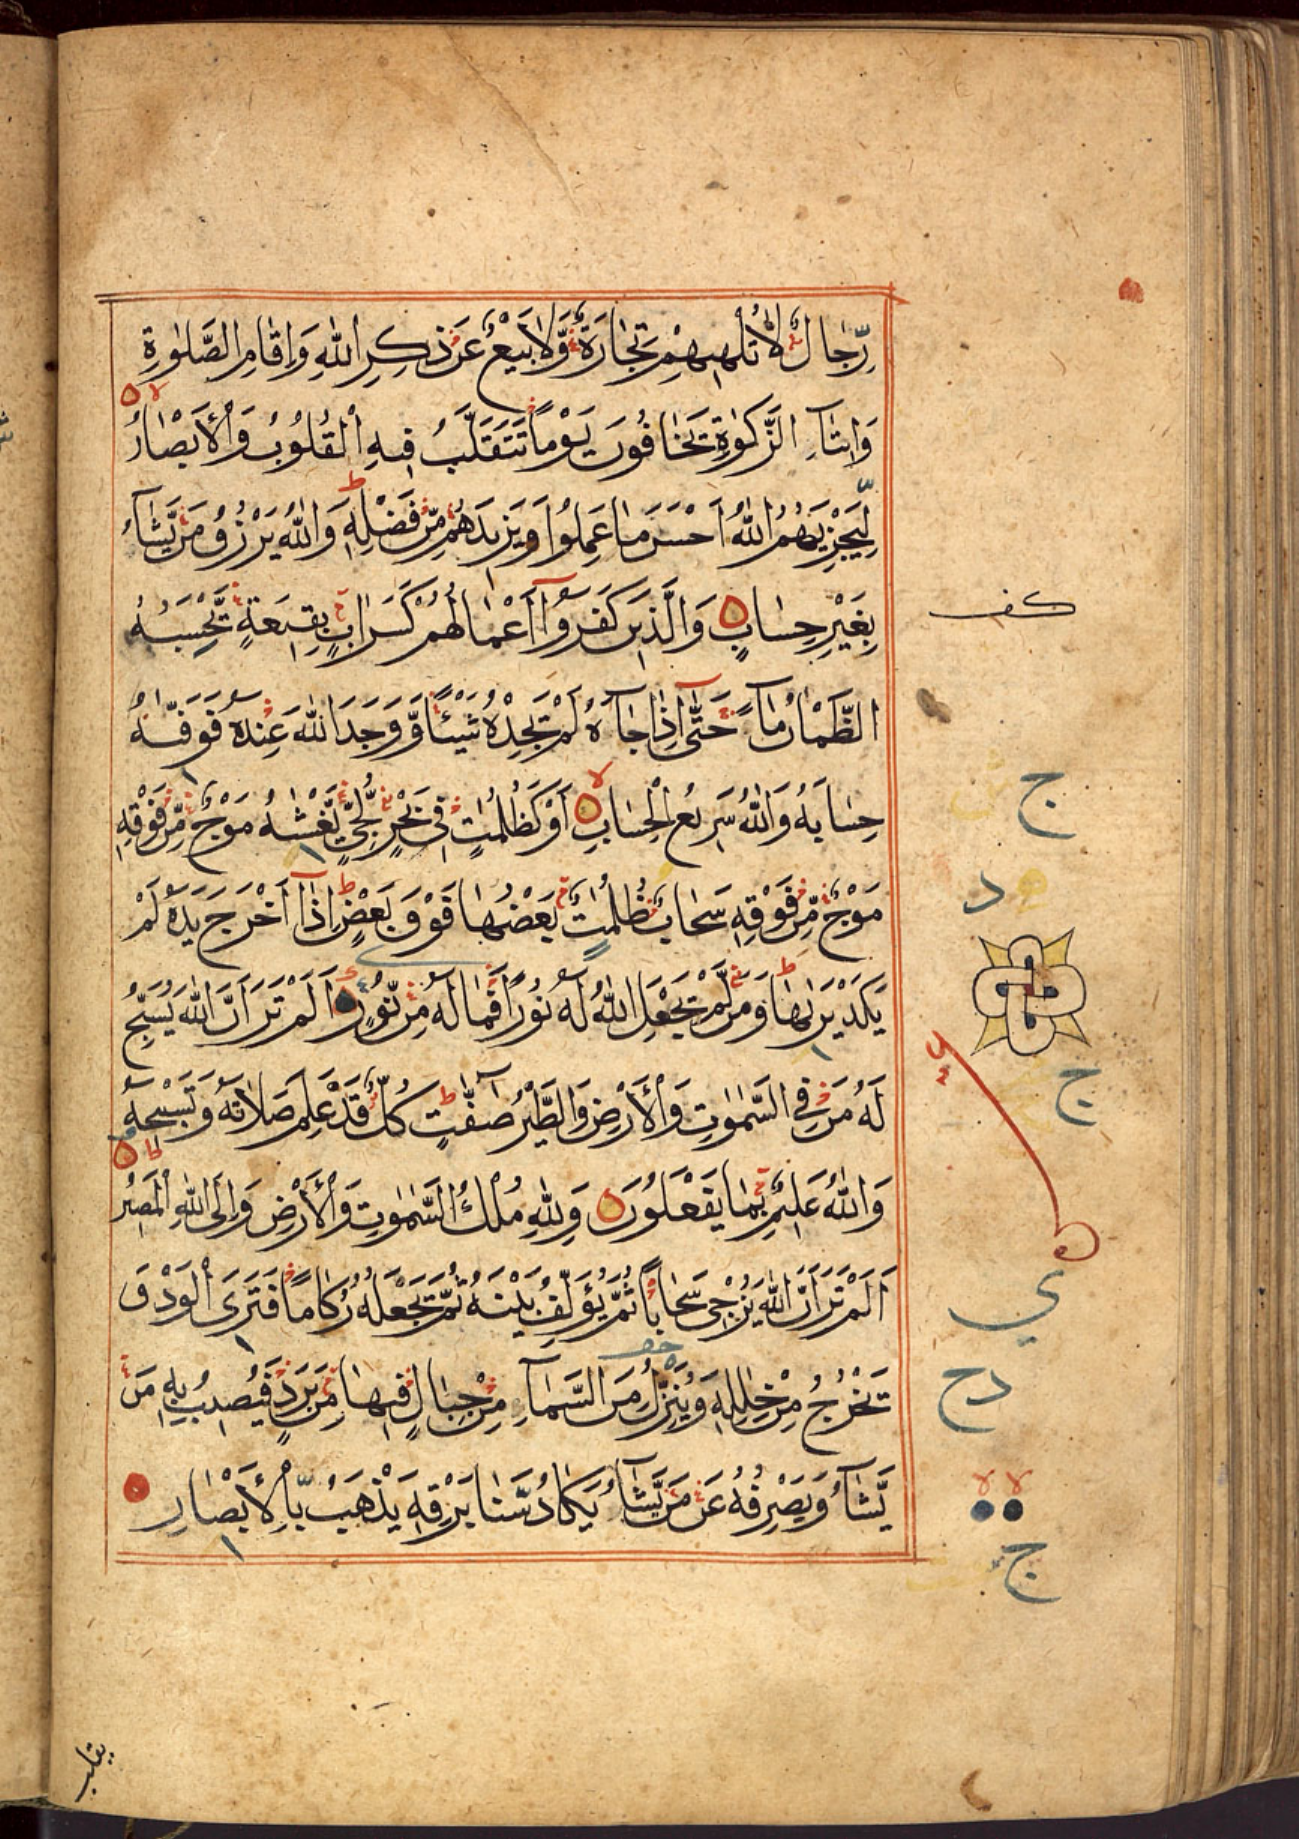 رِّجَالٌ لَّا تُلْهِيهِمْ تِجَارَةٌ وَّلَا بَيْعٌ عَنْ ذِكْرِ اللّٰهِ وَاِقَامِ الصَّلٰوةِ
وَاِيتَآءِ الزَّكٰوةِ يَخَافُونَ يَوْمًا تَتَقَلَّبُ فِيهِ الْقُلُوبُ وَالْاَبْصَارُ
لِيَجْزِيَهُمُ اللّٰهُ اَحْسَنَ مَا عَمِلُوا وَيَزِيدَهُمْ مِّنْ فَضْلِهٖ وَاللّٰهُ يَرْزُقُ مَنْ يَّشَآءُ
بِغَيْرِ حِسَابٍ وَالَّذِينَ كَفَرُوآ اَعْمَالُهُمْ كَسَرَابٍ بِقِيعَةٍ يَّحْسَبُهُ
كف
الظَّمْاٰنُ مَآءً حَتّٰىٓ اِذَا جَآءَهُ لَمْ يَجِدْهُ شَيْئًا وَّوَجَدَ اللّٰهَ عِنْدَهُ فَوَفّٰىهُ
حِسَابَهُ وَاللّٰهُ سَرِيعُ الْحِسَابِ اَوْ كَظُلُمٰتٍ فِي بَحْرٍ لُّجِّيٍّ يَّغْشٰىهُ مَوْجٌ مِّنْ فَوْقِهٖ
ج
مَوْجٌ مِّنْ فَوْقِهٖ سَحَابٌ ظُلُمٰتٌ بَعْضُهَا فَوْقَ بَعْضٍ اِذَآ اَخْرَجَ يَدَهُ لَمْ
د
يَكَدْ يَرٰىهَا وَمَنْ لَّمْ يَجْعَلِ اللّٰهُ لَهُ نُورًا فَمَا لَهُ مِنْ نُّورٍ اَلَمْ تَرَ اَنَّ اللّٰهَ يُسَبِّحُ
لَهُ مَنْ فِي السَّمٰوٰتِ وَالْاَرْضِ وَالطَّيْرُ صٰٓفّٰتٍ كُلٌّ قَدْ عَلِمَ صَلَاتَهُ وَتَسْبِيحَهُ
ج
وَاللّٰهُ عَلِيمٌ بِمَا يَفْعَلُونَ وَلِلّٰهِ مُلْكُ السَّمٰوٰتِ وَالْاَرْضِ وَاِلَى اللّٰهِ الْمَصِيرُ
اَلَمْ تَرَ اَنَّ اللّٰهَ يُزْجِي سَحَابًا ثُمَّ يُؤَلِّفُ بَيْنَهُ ثُمَّ يَجْعَلُهُ رُكَامًا فَتَرَى الْوَدْقَ
ي
يَخْرُجُ مِنْ خِلٰلِهٖ وَيُنَزِّلُ مِنَ السَّمَآءِ مِنْ جِبَالٍ فِيهَا مِنْ بَرَدٍ فَيُصِيبُ بِهٖ مَنْ
دح
يَّشَآءُ وَيَصْرِفُهُ عَنْ مَنْ يَّشَآءُ يَكَادُ سَنَا بَرْقِهٖ يَذْهَبُ بِالْاَبْصَارِ
ج
يقلب